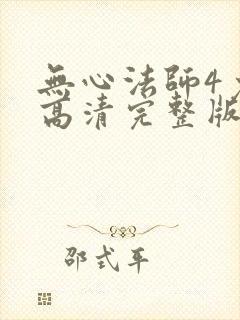 無心法師4
高清完整版
邵式平